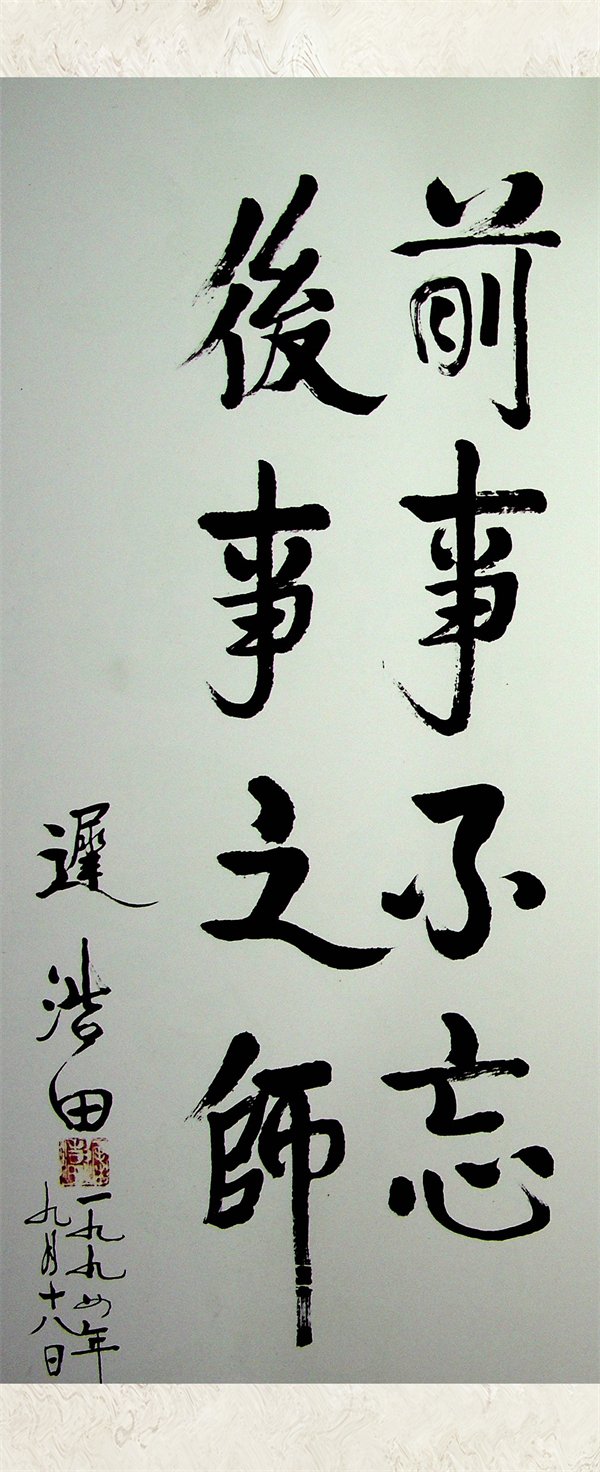 前事不忘
後事之師
遲浩田
一九九四年
九月十八日